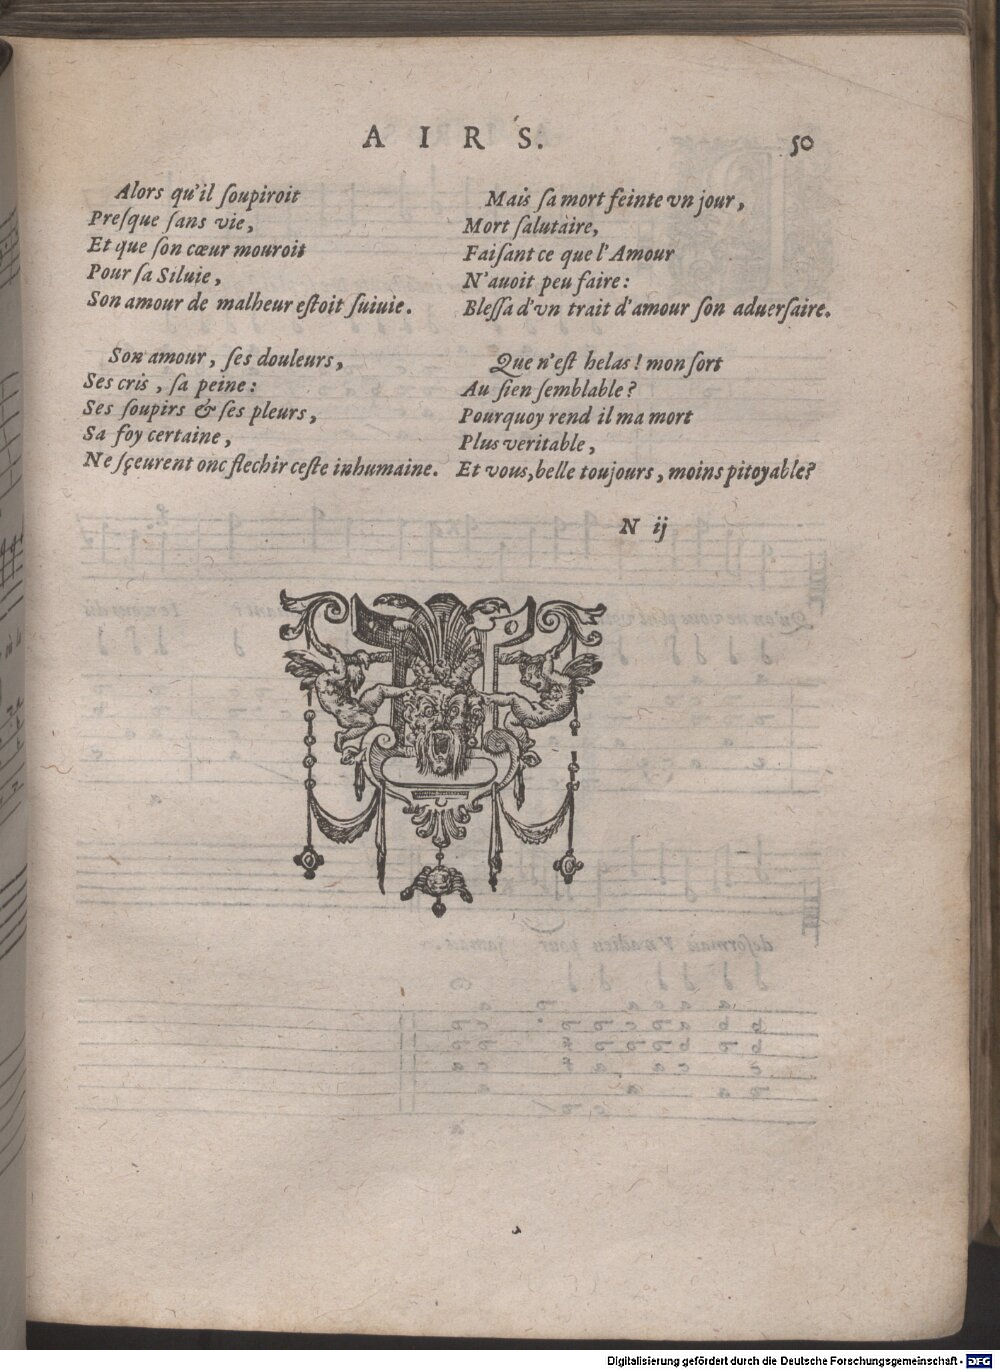 AIRS.
50
Alors qu'il ſoupiroit
Preſque ſans vie,
Et que ſon cœur mouroit
Pour ſa Siluie,
Son amour de malheur eſtoit ſuiuie.
Son amour, ſes douleurs,
Ses cris, ſa peine:
Ses ſoupirs & ſes pleurs,
Sa foy certaine,
Ne ſçeurent onc flechir ceſte inhumaine.
Mais ſa mort feinte vn jour,
Mort ſalutaire,
Faiſant ce que l'Amour
N'auoit peu faire:
Bleſſa d'vn trait d'amour ſon aduerſaire.
Que n'eſt helas! mon ſort
Au ſien ſemblable?
Pourquoy rend il ma mort
Plus veritable,
Et vous, belle toujours, moins pitoyable?
N ij
Digitalisierung gefördert durch die Deutsche Forschungsgemeinschaft - DFG